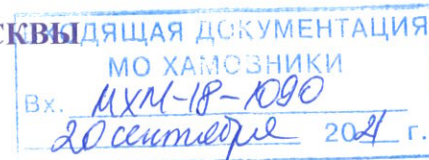 СКВЫ ХОДЯЩАЯ ДОКУМЕНТАЦИЯ
МО ХАМОВНИКИ
Вх. МХМ-18-1090
20 сентября 2021 г.